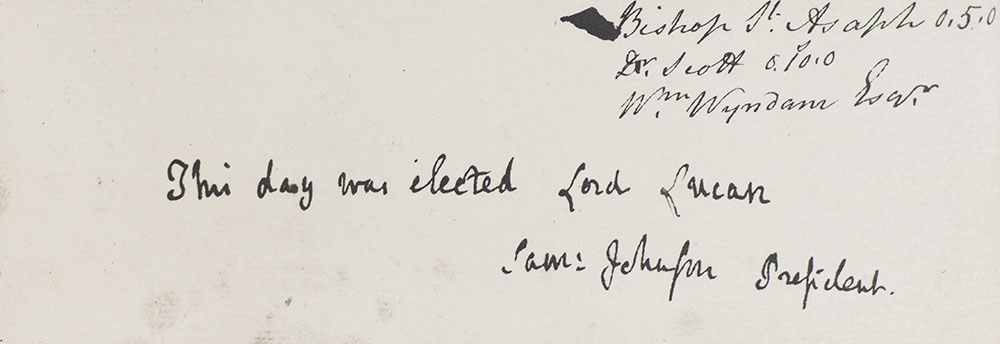 Bishop St. Asaph 0.5.0
Dr. Scott 0.10.0
Wm. Wyndam Esqr.
This day was elected Lord Lucan
Sam: Johnſon Preſident.